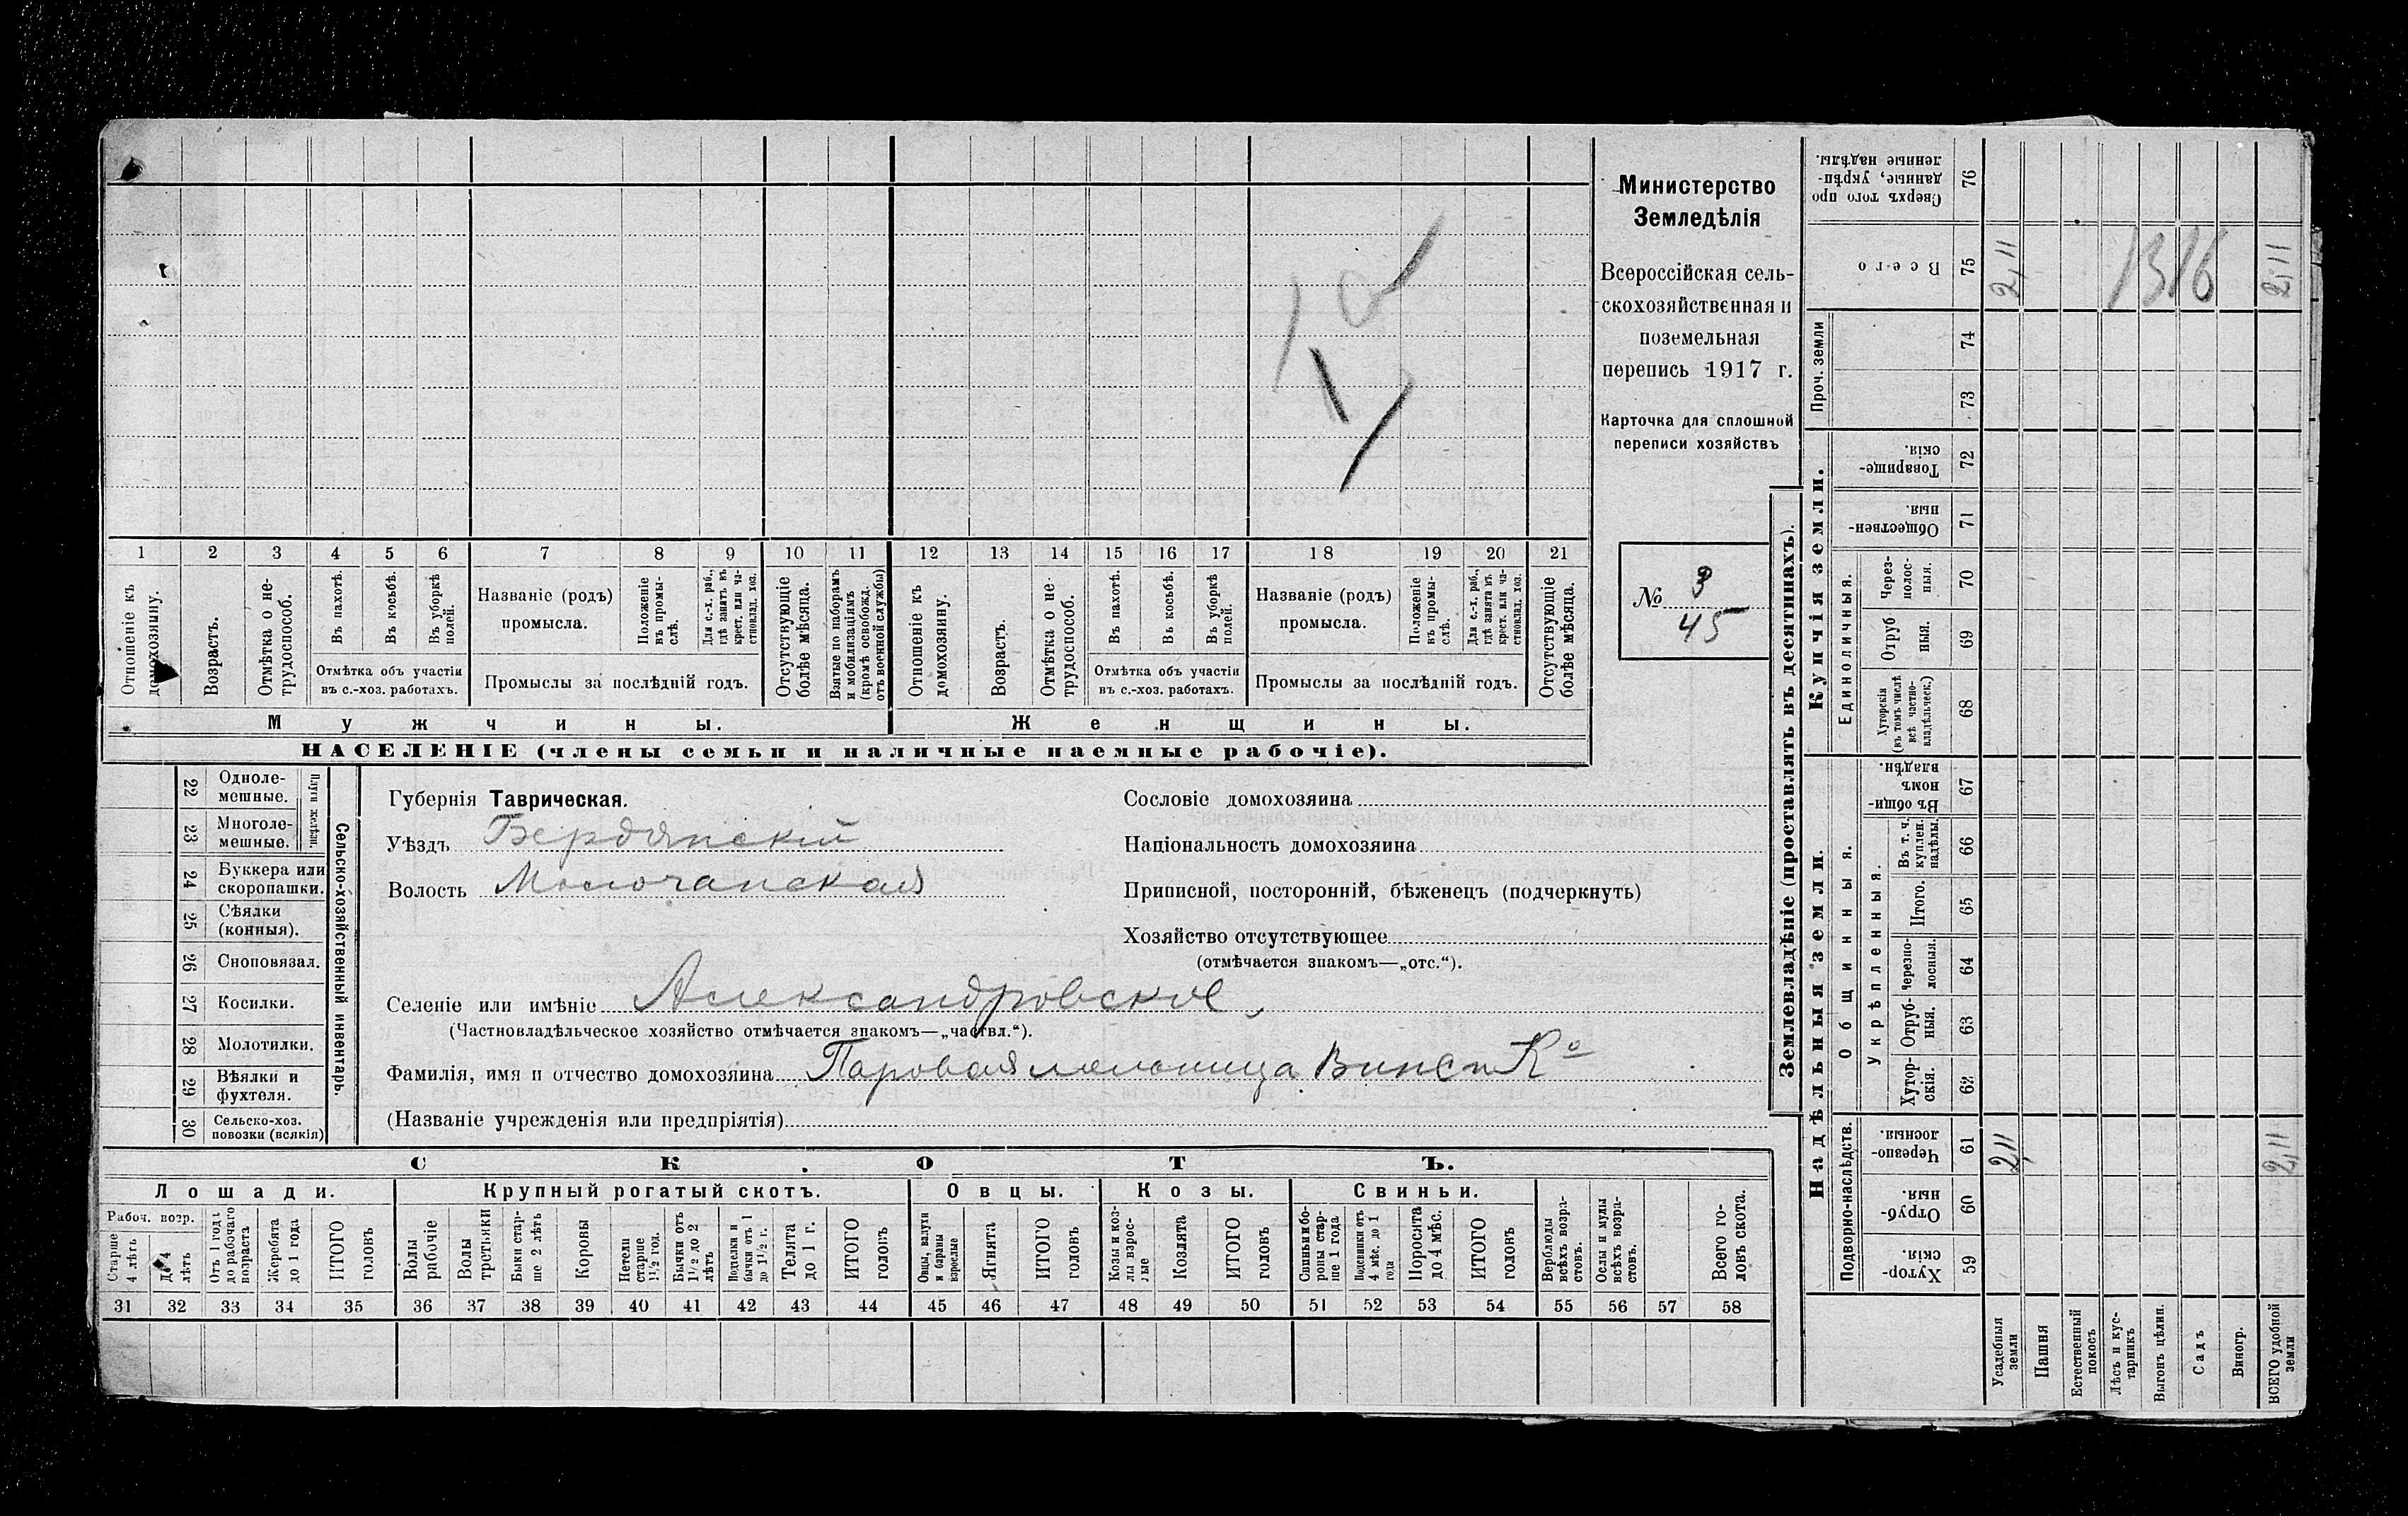 Министерство
Земледѣлія
Всероссійская сель-
скохозяйственная и
поземельная
перепись 1917 г.
Карточка для сплошной
переписи хозяйствъ
№ 3
45
1 2 3 4 5 6 7 8 9 10 11 12 13 14 15 16 17 18 19 20 21
Отношеніе къ домохозяину.
Возрастъ.
Отмѣтка о не-трудоспособ.
Въ пахотѣ.
Въ косьбѣ.
Въ уборкѣ полей.
Отмѣтка объ участіи
въ с.-хоз. работахъ.
Названіе (родъ)
промысла.
Положеніе въ промы-слѣ.
Для с.-х. раб., гдѣ занятъ въ крест. или ча-стновлад. хоз.
Промыслы за послѣдній годъ.
Отсутствующіе болѣе мѣсяца.
Взятые по наборамъ и мобилизаціямъ (кромѣ освобожд. отъ военной службы)
Отношеніе къ домохозяину.
Возрастъ.
Отмѣтка о не-трудоспособ.
Въ пахотѣ.
Въ косьбѣ.
Въ уборкѣ полей.
Отмѣтка объ участіи
въ с.-хоз. работахъ.
Названіе (родъ)
промысла.
Положеніе въ промы-слѣ.
Для с.-х. раб., гдѣ занята въ крест. или ча-стновлад. хоз.
Промыслы за послѣдній годъ.
Отсутствующіе болѣе мѣсяца.
Мужчины. Женщины.
НАСЕЛЕНІЕ (члены семьи и наличные наемные рабочіе).
Сельско-хозяйственный инвентарь.
Плуги желѣзн.
22 Одноле-мешные.
23 Многоле-мешные.
24 Буккера или скоропашки.
25 Сѣялки (конныя).
26 Сноповязал.
27 Косилки.
28 Молотилки.
29 Вѣялки и фухтеля.
30 Сельско-хоз. повозки (всякія)
Губернія Таврическая.
Уѣздъ Бердянскій
Волость Молочанская
Сословіе домохозяина
Національность домохозяина
Приписной, посторонній, бѣженецъ (подчеркнуть)
Хозяйство отсутствующее
(отмѣчается знакомъ—„отс.“).
Селеніе или имѣніе Александровское
(Частновладѣльческое хозяйство отмѣчается знакомъ—„частвл.“).
Фамилія, имя и отчество домохозяина Паровая мельница Винс и Ко
(Названіе учрежденія или предпріятія)
СКОТЪ.
Лошади. Крупный рогатый скотъ. Овцы. Козы. Свиньи.
Рабоч. возр.
Старше 4 лѣтъ
До 4 лѣтъ
Отъ 1 года до рабочаго возраста
Жеребята до 1 года
ИТОГО головъ
Волы рабочіе
Волы третьяки
Быки стар-ше 2 лѣтъ
Коровы
Нетели старше 1 1/2 год.
Бычки отъ 1 1/2 до 2 лѣтъ
Подтелки и бычки отъ 1 до 1 1/2 г.
Телята до 1 г.
ИТОГО головъ
Овцы, валухи и бараны взрослые
Ягнята
ИТОГО головъ
Козы и коз-лы взрос-лые
Козлята
ИТОГО головъ
Свиньи и бо-ровы стар-ше 1 года
Подсвинки отъ 4 мѣс. до 1 года
Поросята до 4 мѣс.
ИТОГО головъ
Верблюды всѣхъ возра-стовъ.
Ослы и мулы всѣхъ возра-стовъ.
Всего го-ловъ скота.
31 32 33 34 35 36 37 38 39 40 41 42 43 44 45 46 47 48 49 50 51 52 53 54 55 56 57 58
Землевладѣніе (проставлять въ десятинахъ).
Сверхъ того про данные, укрѣп-ленные надѣлы. 76
Всего 75 2,11 1316 2,11
Проч. земли
74
73
Купчія земли.
Товарище-скія. 72
Обществен-ныя. 71
Единоличныя.
Через-полос-ныя. 70
Отруб ныя. 69
Хуторскія (въ томъ числѣ всѣ частно-владѣльческ.) 68
Надѣльныя земли.
Общинныя.
Въ общи-номъ владѣн. 67
Укрѣпленныя.
Въ т. ч. куплен. надѣлы. 66
Итого. 65
Черезпо-лосныя. 64
Отруб-ныя. 63
Хутор-скія. 62
Подворно-наслѣдств.
Черезпо-лосныя. 61 2,11 2,11
Отруб-ныя. 60
Хутор-скія. 59
Усадебныя земли
Пашня
Естественный покосъ
Лѣсъ и кус-тарникъ
Выгонъ цѣлин.
Садъ
Виногр.
ВСЕГО удобной земли